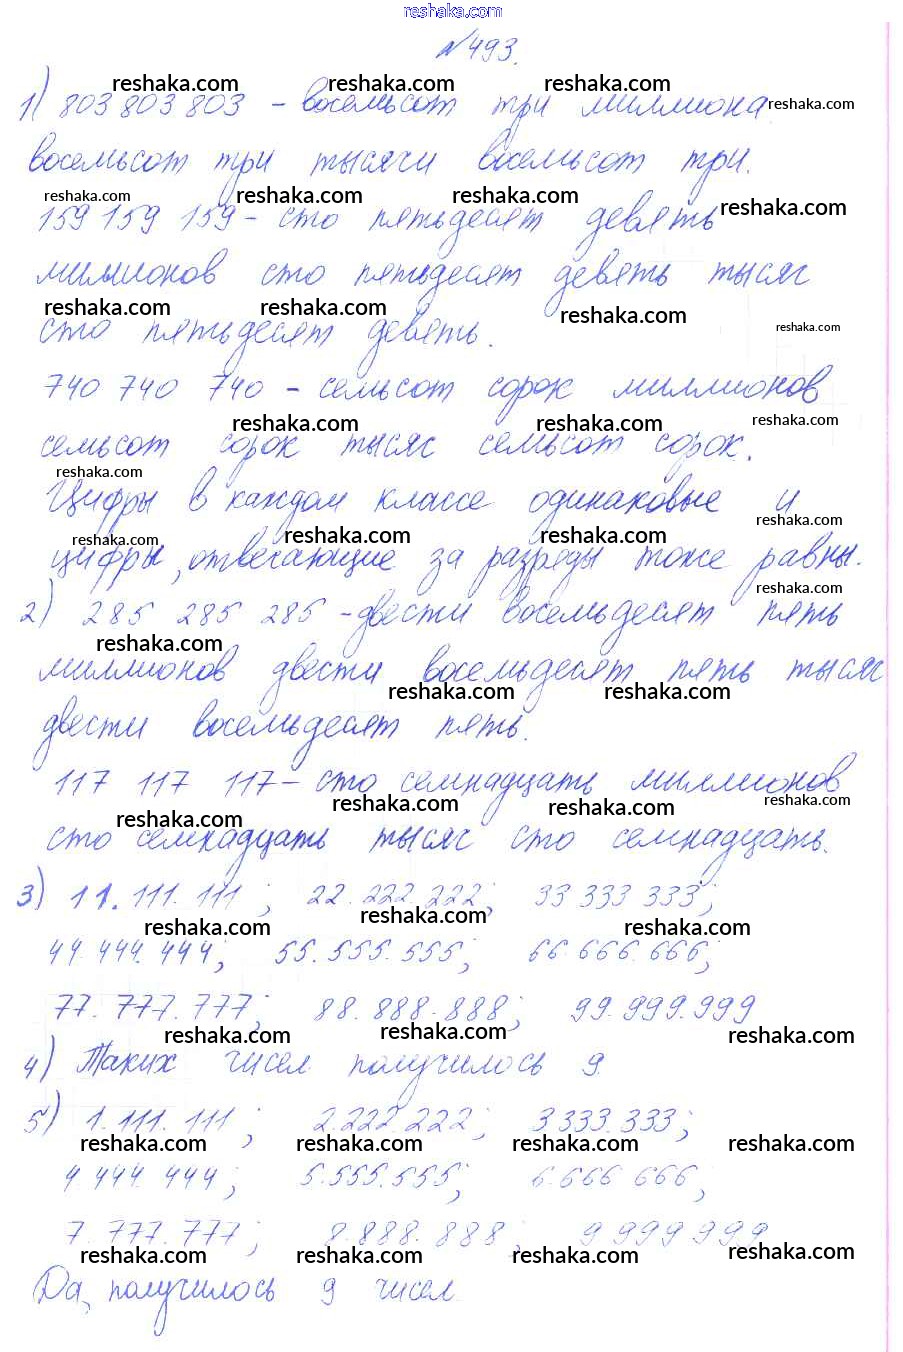 reshaka.com
№493.
reshaka.com reshaka.com reshaka.com
1) 803 803 803 - восемьсот три миллиона
reshaka.com
восемьсот три тысячи восемьсот три.
reshaka.com reshaka.com reshaka.com reshaka.com
159 159 159 - сто пятьдесят девять
миллионов сто пятьдесят девять тысяч
reshaka.com reshaka.com reshaka.com reshaka.com
сто пятьдесят девять.
740 740 740 - семьсот сорок миллионов
reshaka.com reshaka.com reshaka.com
семьсот сорок тысяч семьсот сорок.
reshaka.com
Цифры в каждом классе одинаковые и
reshaka.com reshaka.com reshaka.com reshaka.com
цифры, отвечающие за разряды тоже равны.
reshaka.com
2) 285 285 285 - двести восемьдесят пять
reshaka.com
миллионов двести восемьдесят пять тысяч
reshaka.com reshaka.com
двести восемьдесят пять.
117 117 117 - сто семнадцать миллионов
reshaka.com reshaka.com reshaka.com reshaka.com
сто семнадцать тысяч сто семнадцать.
3) 11.111.111; 22.222.222; 33 333 333;
reshaka.com reshaka.com reshaka.com
44.444.444; 55.555.555; 66.666.666;
77.777.777; 88.888.888; 99.999.999
reshaka.com reshaka.com reshaka.com
4) Таких чисел получилось 9.
5) 1.111.111; 2.222.222; 3 333.333;
reshaka.com reshaka.com reshaka.com reshaka.com
4 444.444; 5.555.555; 6.666 666;
7.777.777; 8.888.888; 9 999 999
reshaka.com reshaka.com reshaka.com reshaka.com
Да, получилось 9 чисел